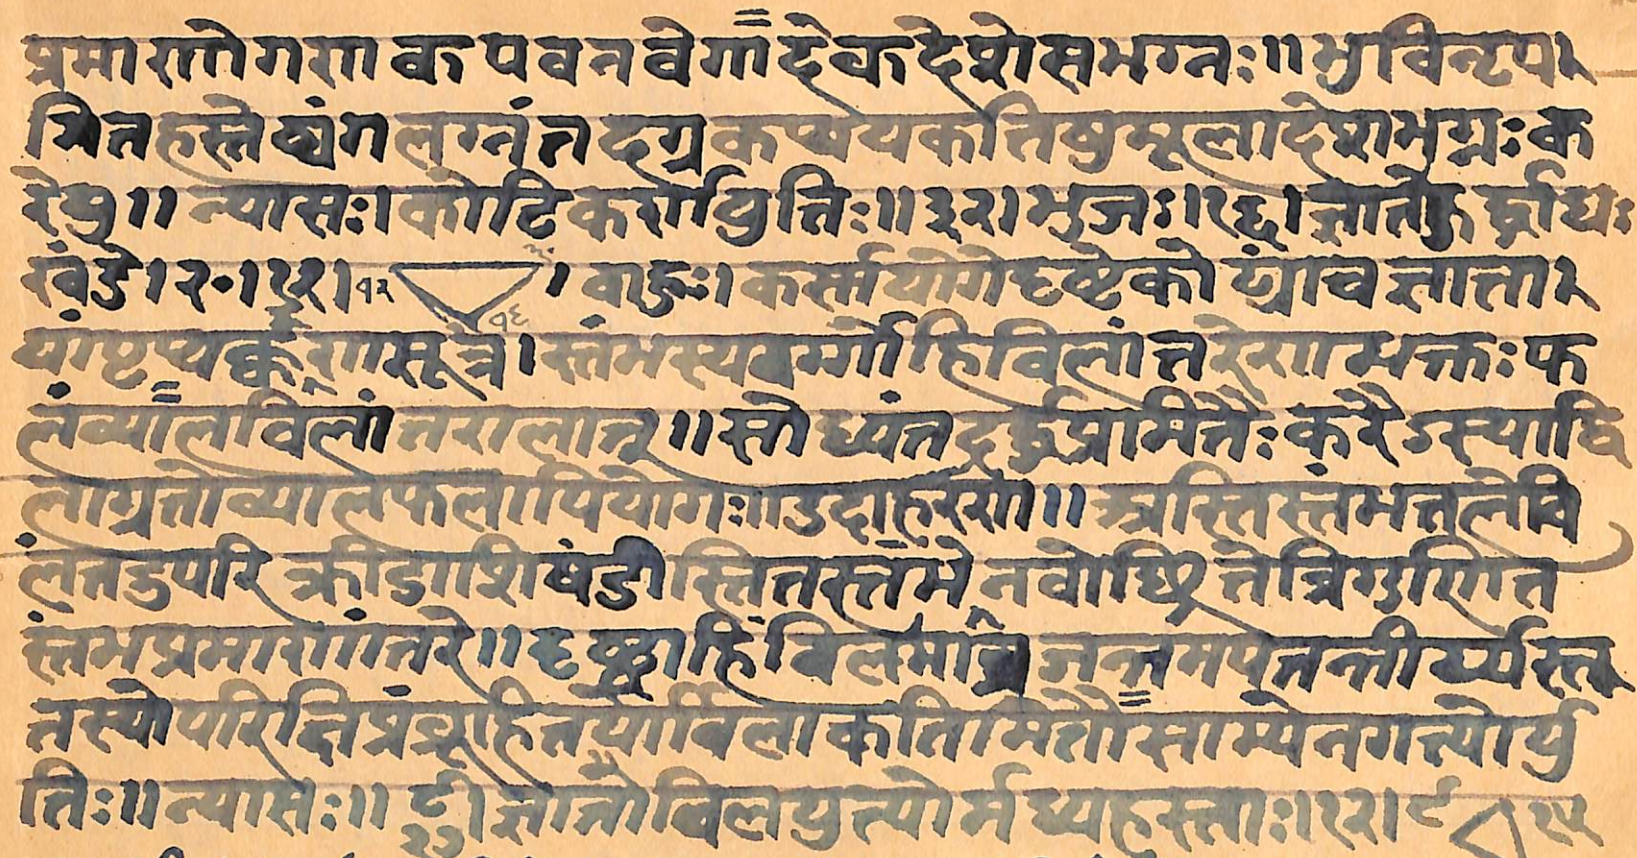 प्रमाणोगणक पवनवेगादेकदेशेसभग्नः॥ भुविनृपः
मितहस्तेष्वंगलग्नंतदग्रंकथयकतिषुमूलादेषभग्नः क
रेषु॥ न्यासः। कोटिकर्णयुतिः॥३२। भुजः।१६। जातेऊर्द्ध्वाधः
खंडे।२०।१२। १२ १६। बाहुः। कर्णयोगेदृष्टेकोट्यांचज्ञाता
यांपृथक्करणसूत्रं। स्तंभस्यवर्गोहिविलांतरेणभक्तः फ
लंव्यालविलांतरालात्॥ शोध्यंतदर्द्धप्रमितैः करैःस्याद्वि
लाग्रतोव्यालकलापियोगः॥ उदाहरणं॥ अस्तिस्तंभतलेवि
लंतदुपरि क्रीडाशिखंडीस्थितस्तंभे नवोच्छ्रितेत्रिगुणित
स्तंभप्रमाणांतरे॥ दृष्ट्वाहिंविलमाव्रजन्तमपतत्तीर्य्यक्स
तस्योपरिक्षिप्रंब्रूहितयोर्विलात्कतिमितौसाम्येनगत्योर्यु
तिः॥ न्यासः॥ ९। २७ जातौविलयुत्योर्मध्यहस्ताः।१२। ९ १२